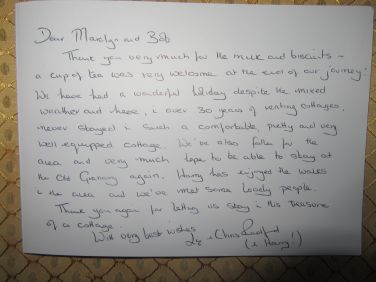 Dear Marelyn and Bob
Thank you very much for the milk and biscuits -
a cup of tea was very welcome at the end of our journey!
We have had a wonderful holiday despite the mixed
weather and have, in over 30 years of renting cottages,
never stayed in such a comfortable, pretty and very
well equipped cottage. We've also fallen for the
area and very much hope to be able to stay at
the Old Granary again. Harry has enjoyed the walks
in the area and we've met some lovely people.
Thank you again for letting us stay in this treasure
of a cottage.
With very best wishes
Chris
(& Harry!)